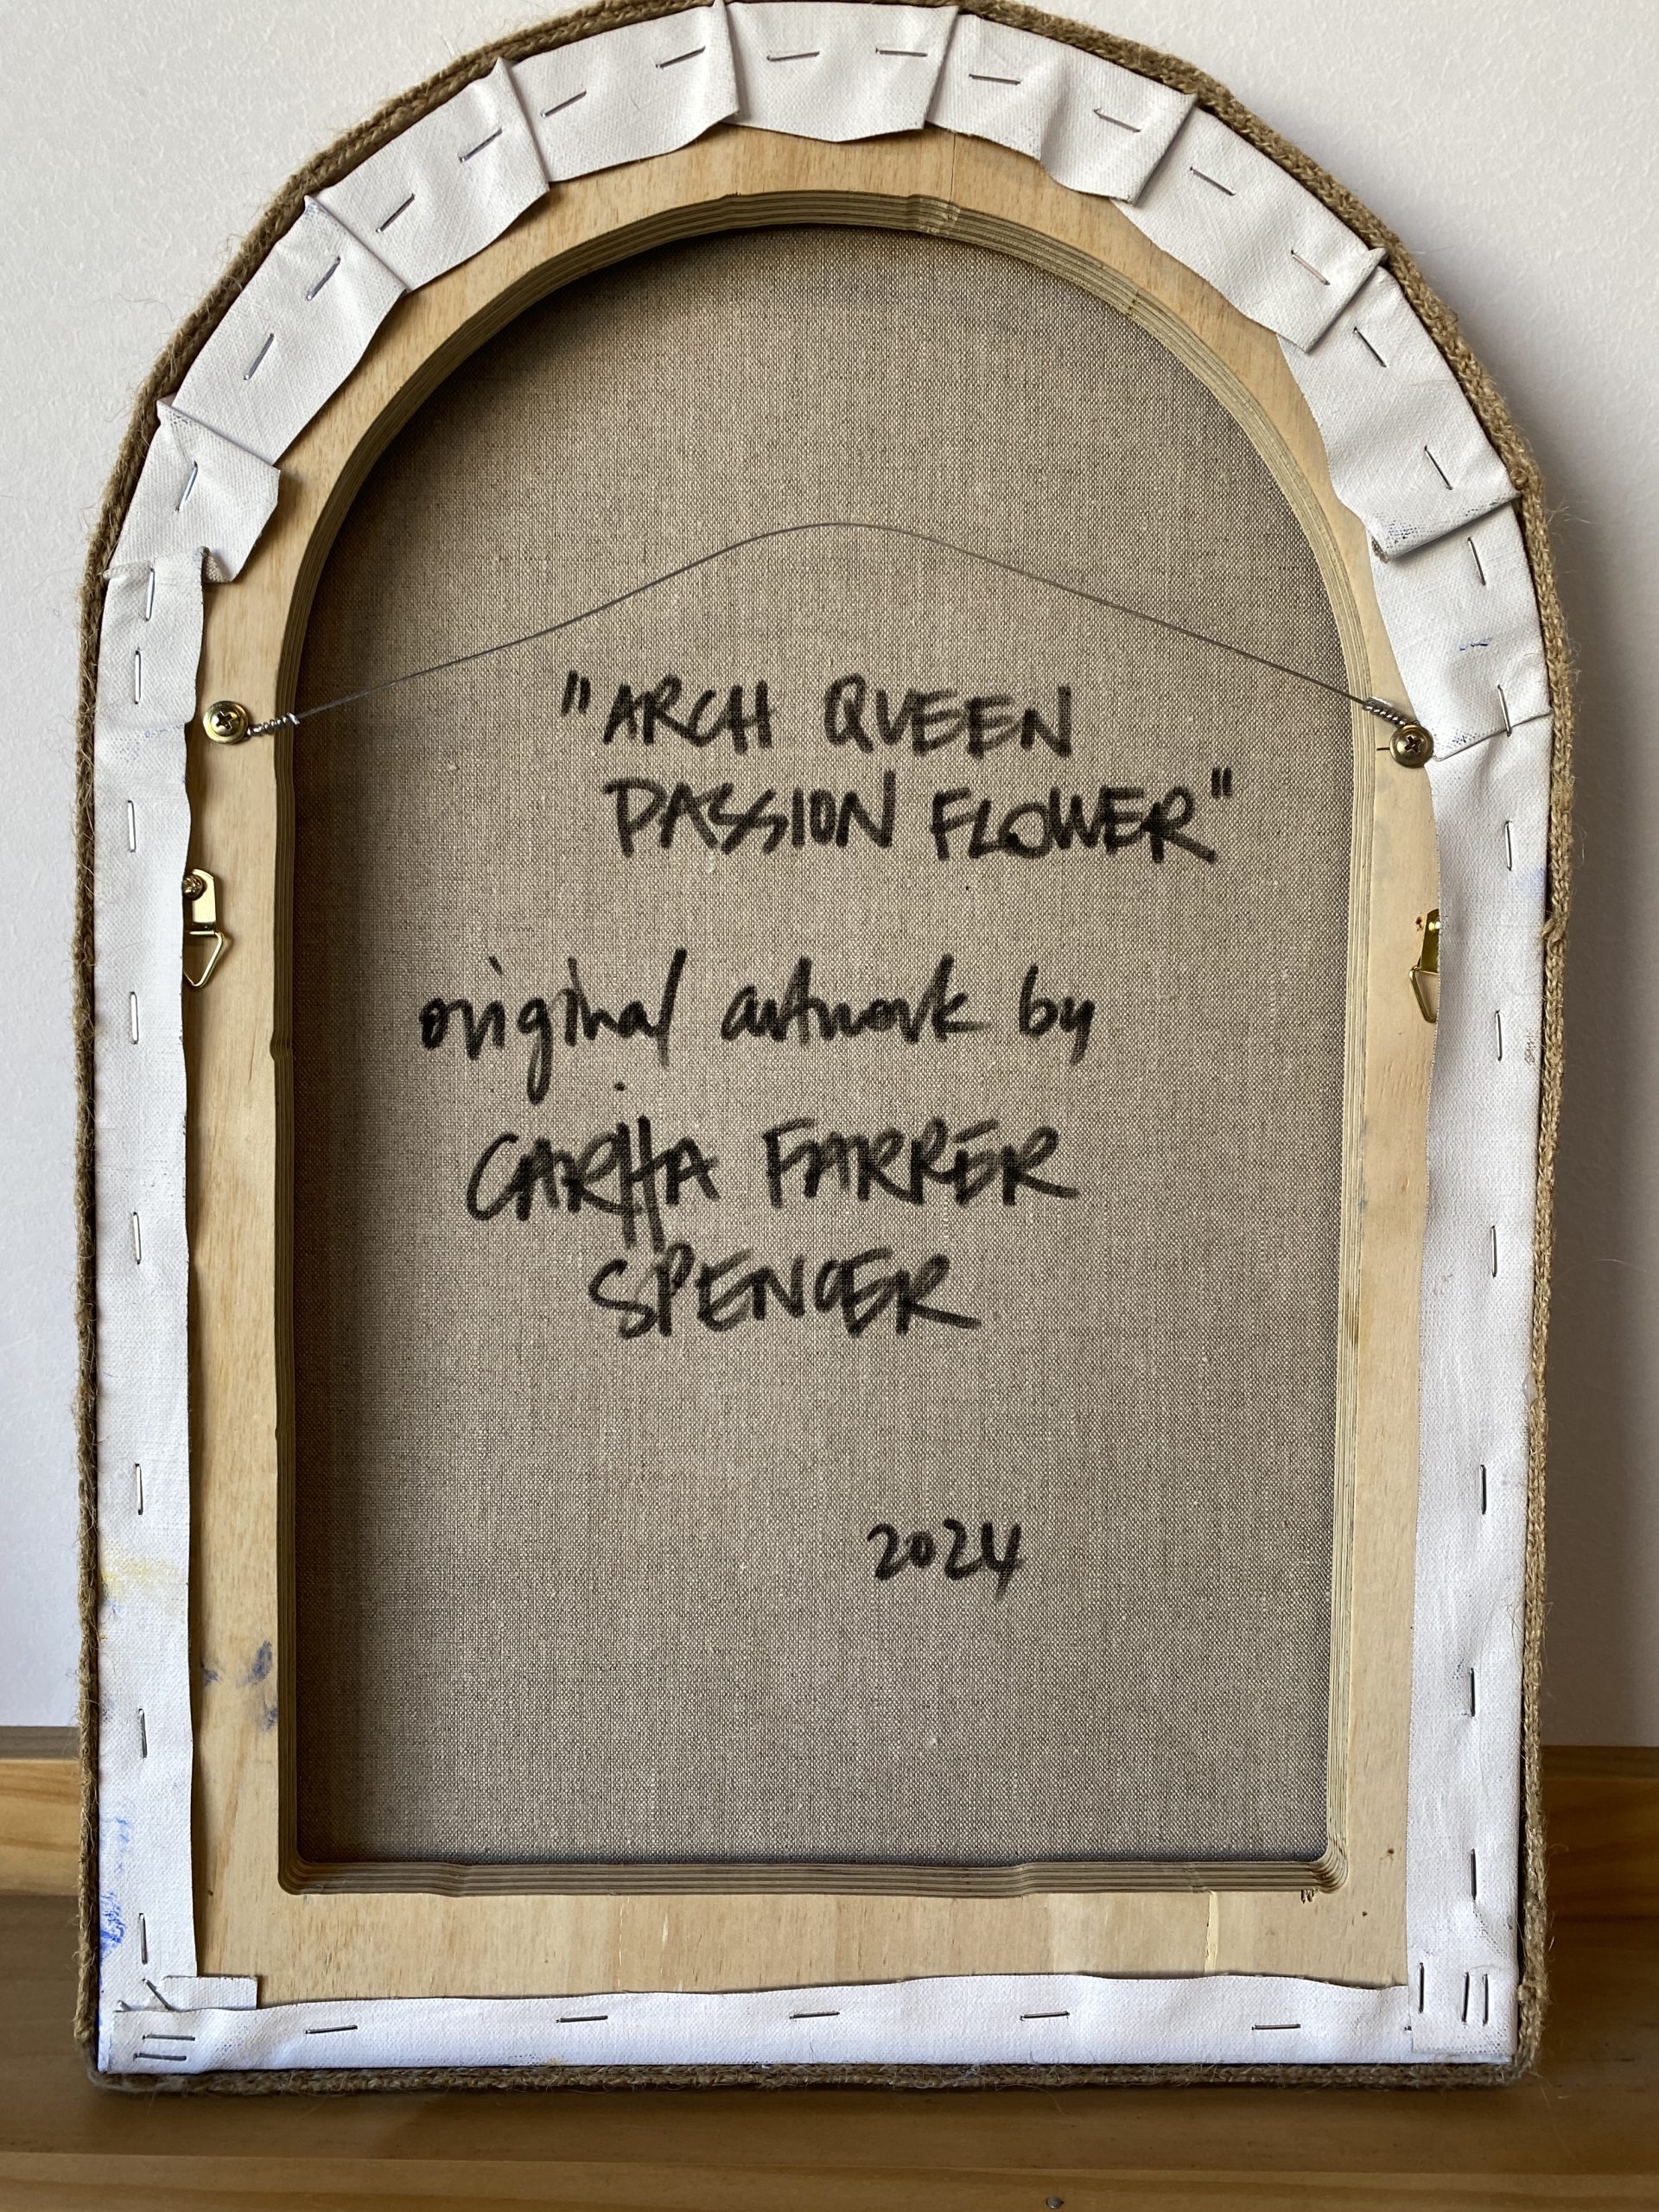 "ARCH QUEEN
PASSION FLOWER"
original artwork by
CARITA FARRER
SPENCER
2024